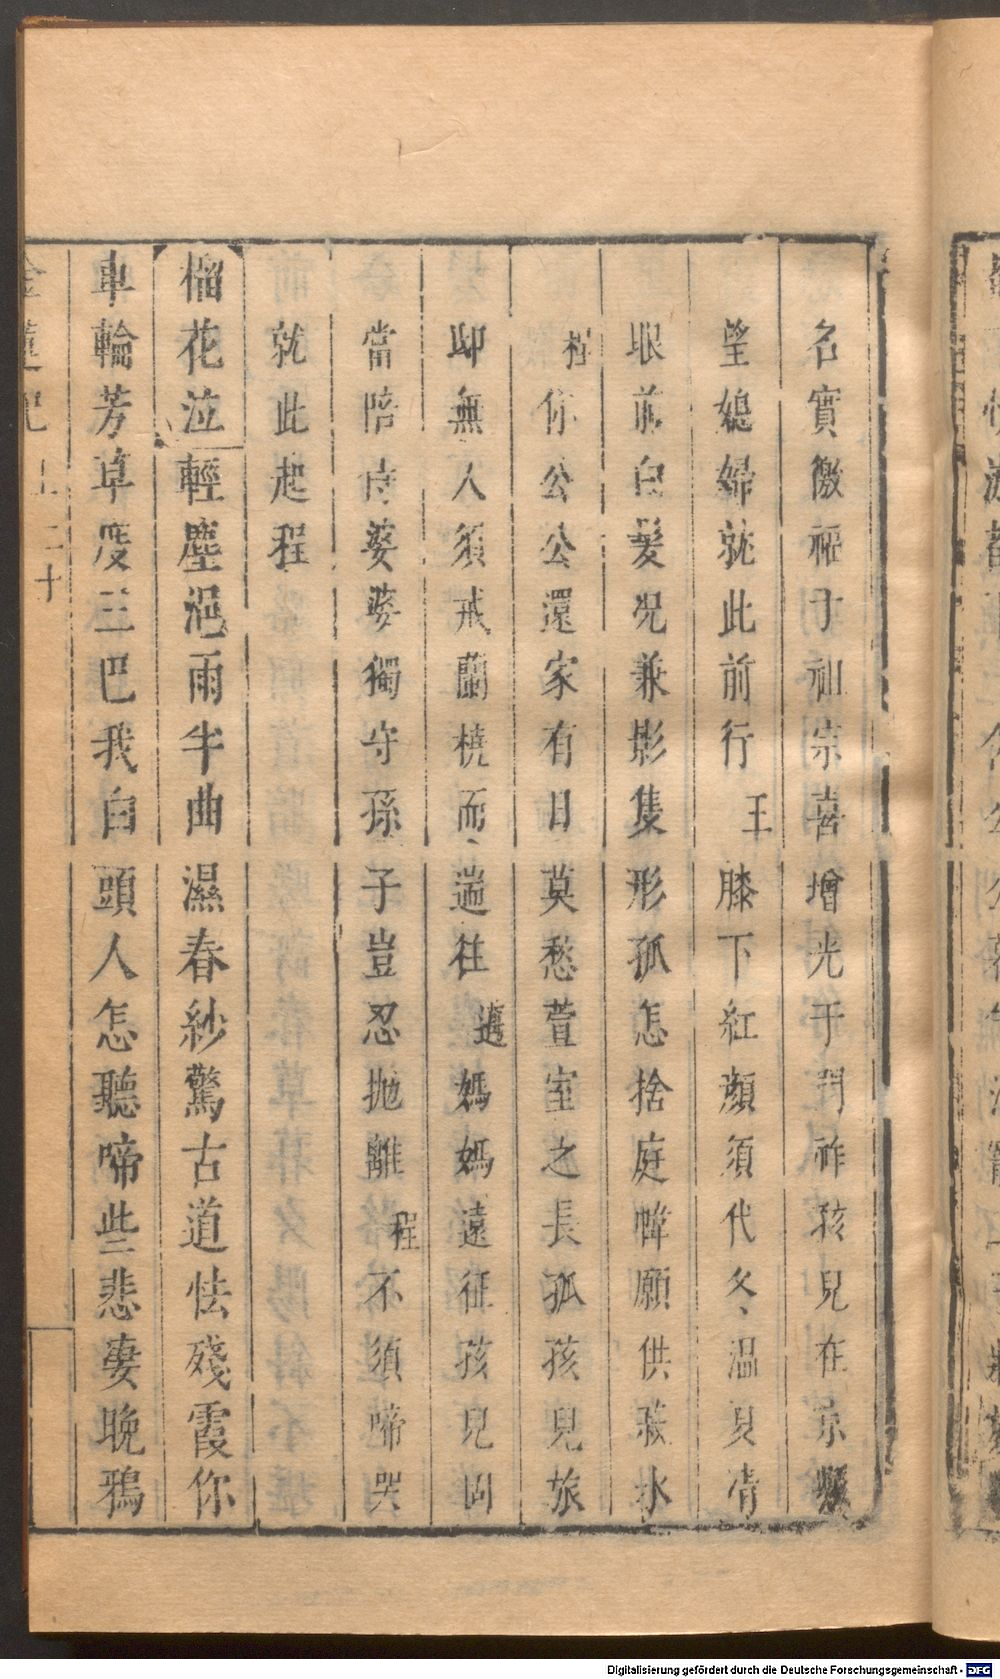 名實徼福于祖宗喜增光于門祚孩兒在京顒
望媳婦就此前行王膝下紅顔須代冬溫夏凊
眼前白髮况兼影隻形孤怎捨庭幃願供菽水
程你公公還家有日莫愁萱室之長孤孩兒旅
邸無人須戒蘭橈而遄往遇媽媽遠征孩兒固
當陪侍婆婆獨守孫子豈忍抛離程不須啼哭
就此起程
榴花泣輕塵浥雨半曲濕春紗驚古道怯殘霞你
車輪芳草度三巴我白頭人怎聽啼些悲妻晚鴉
金蓮記 上 二十
Digitalisierung gefördert durch die Deutsche Forschungsgemeinschaft - DFG